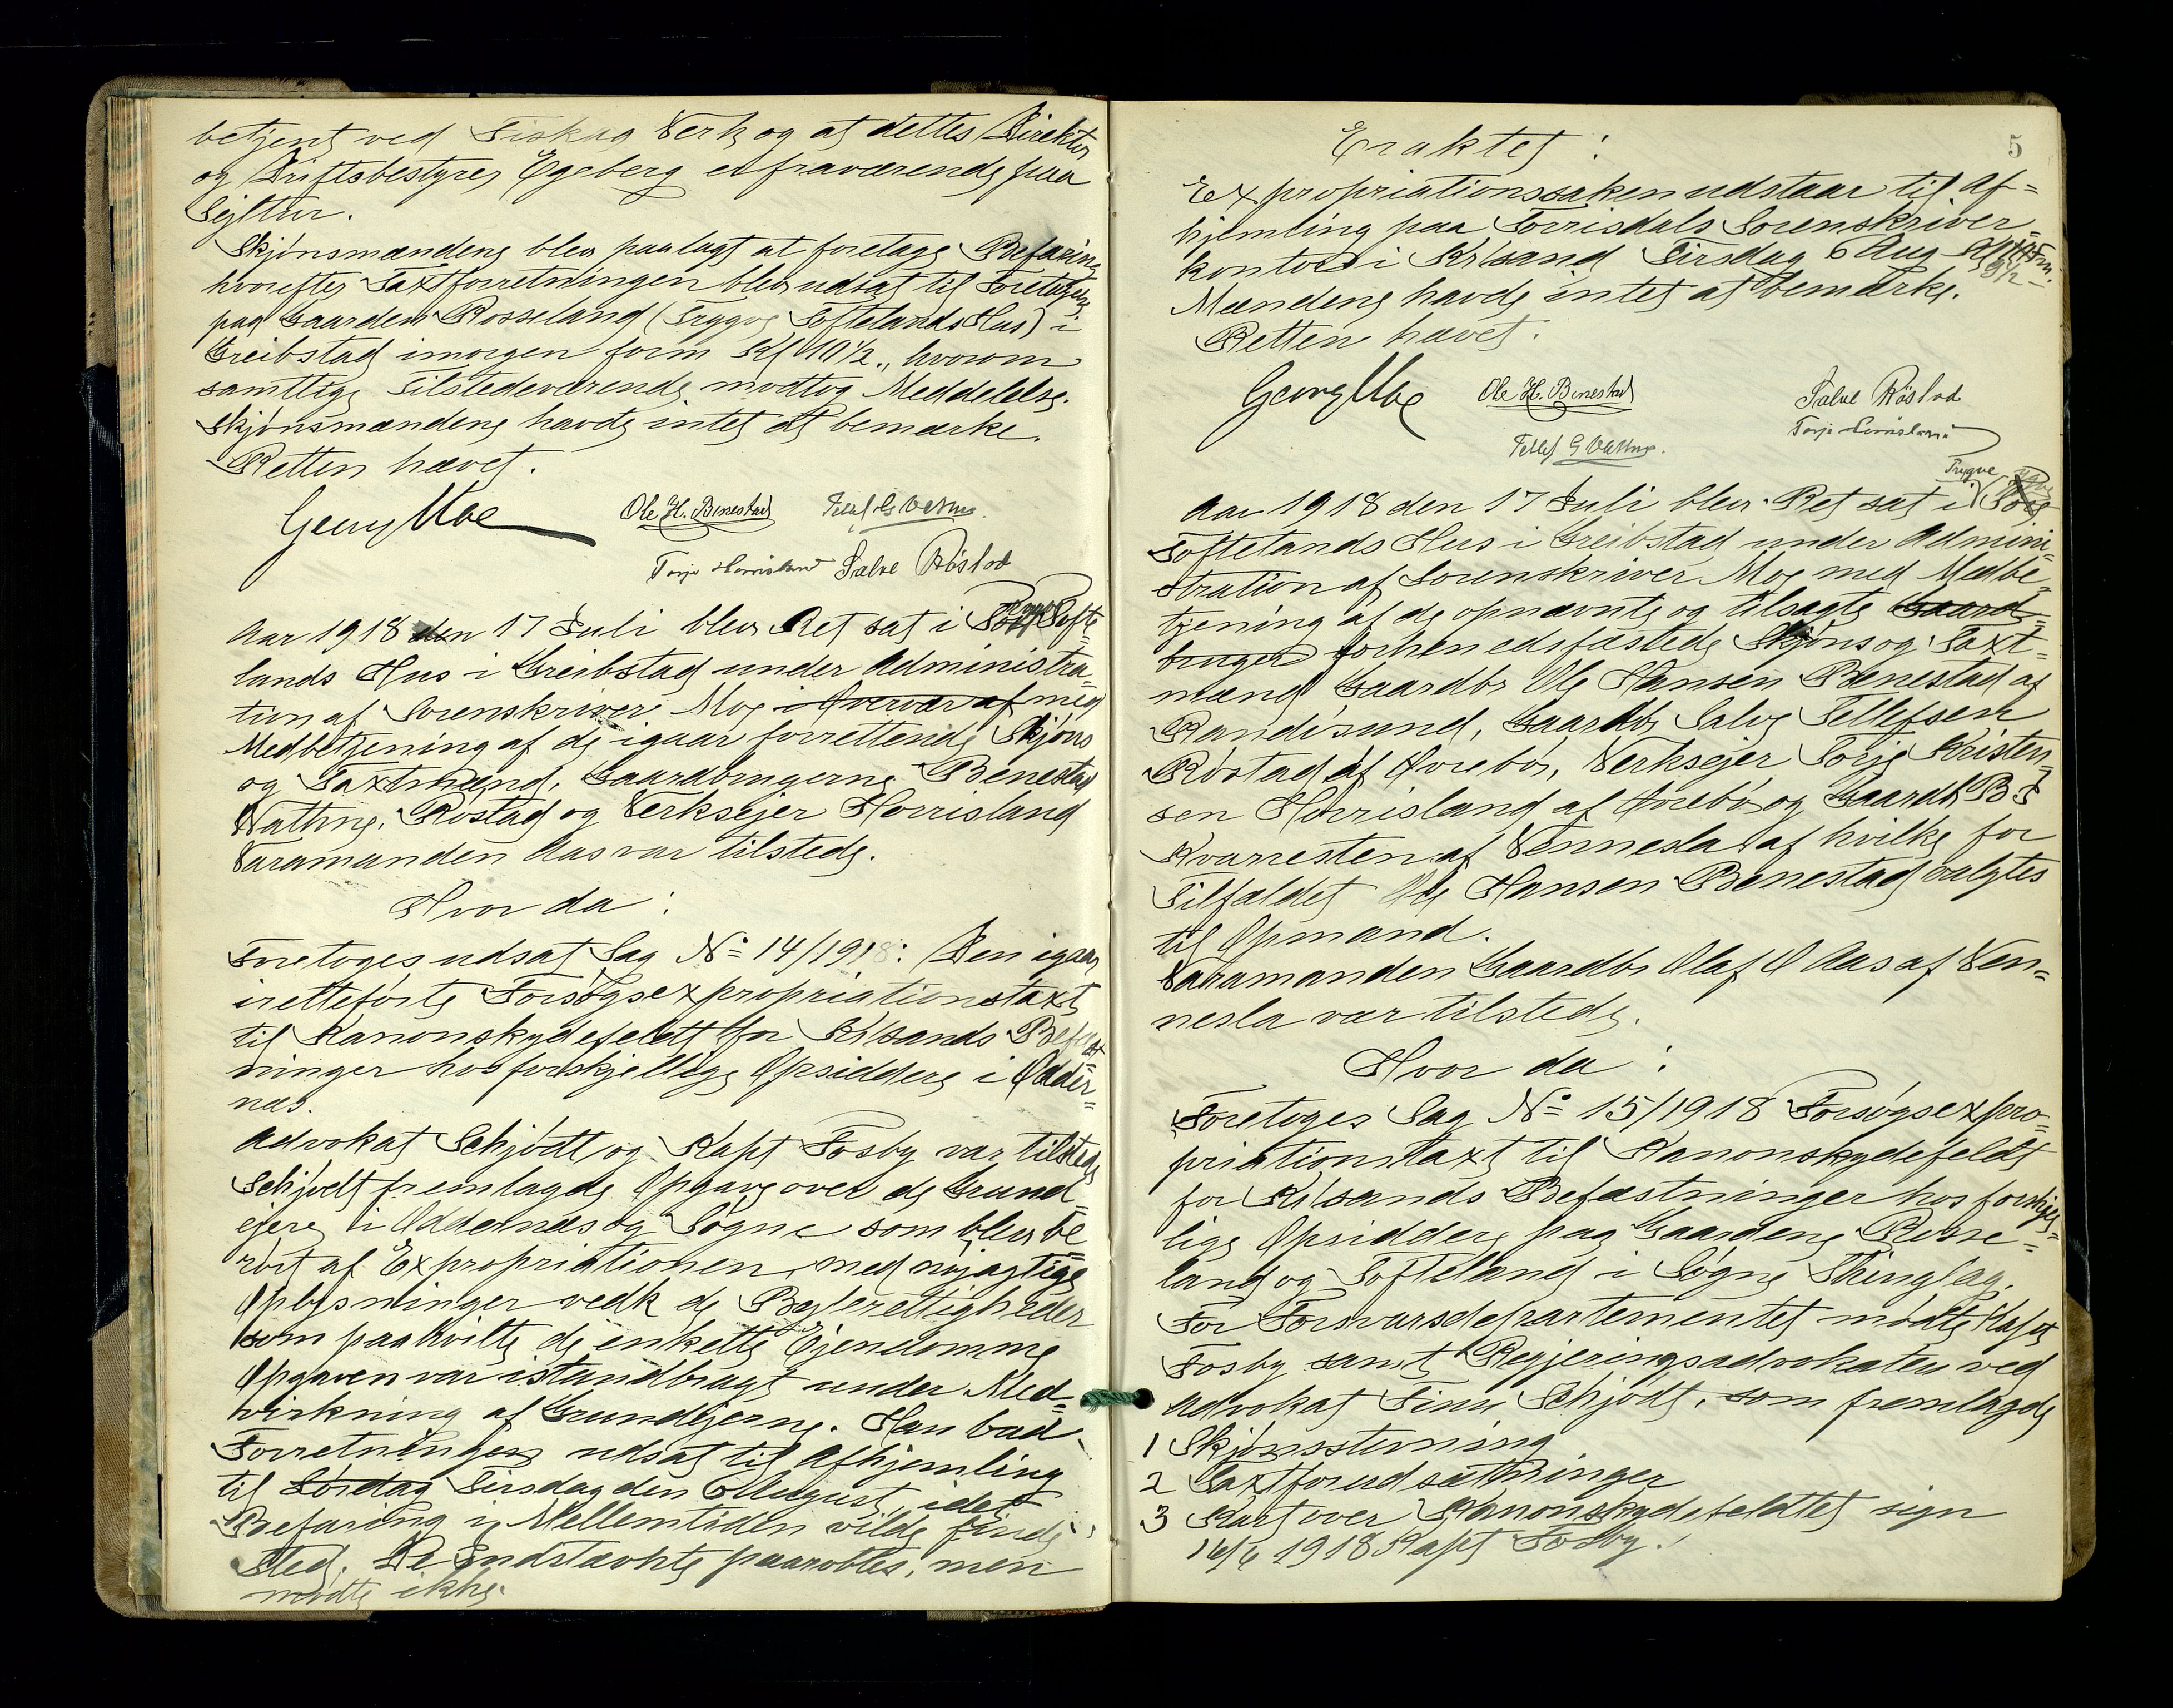 betjent ved Fiskaa Verk og at dettes Direktør
og Driftsbestyrer Egeberg er fraværende paa
Sejltur.
Skjønsmændene blev paalagt at foretage Befaring
hvorefter Taxtforretningen blev udsat til Foretagelse
paa Gaarden Rosseland (Trygve Toftelands Hus) i
Greibstad imorgen form Kl 10½., hvorom
samtlige Tilstedeværende modtog Meddelelse.
Skjønsmændene havde intet at bemærke.
Retten hævet.
Georg Moe Ole H. Benestad Tellef G Vatne
Torje Horrisland Salve Røstad
Aar 1918 den 17 Juli blev Ret sat i Trygve Tofte=
lands Hus i Greibstad under Administra=
tion af Sorenskriver Moe i Overvær af med
Medbetjening af de igaar forrettende Skjøns
og Taxtmænd, Gaardbrugerne Benestad
Vatne, Røstad og Verksejer Horrisland
Varamanden Aas var tilstede.
Hvor da :
Foretoges udsat Sag No 14/1918: Den igaar
iretteførte Forsøgsexpropriationstaxt
til Kanonskydefeldt for Kr/sands Befæst=
ninger hos forskjellige Opsiddere i Odder=
næs.
Advokat Schjødt og Kapt Fosby var tilstede
Schjødt fremlagde Opgave over de Grund=
ejere i Oddernæs og Søgne som blev be=
rørt af Expropriationen, med nøjagtige
Oplysninger vedk de Beiterettigheder
som paahvilte de enkelte Ejendomme
Opgaven var istandbragt under Med=
virkning af Grundejerne. Han bad
Forretningen udsat til Afhjemling
til Lørdag Tirsdag den 6 August, idet
Befaring i Mellemtiden vilde finde
Sted. De Indstævnte paaraabtes, men
mødte ikke.
5
Eraktet :
Expropriationssaken udstaar til Af=
hjemling paa Torrisdals Sorenskriver=
kontor i Kr/sand Tirsdag 6 Aug
9½
Mændene havde intet at bemærke.
Retten hævet.
Georg Moe Ole H. Benestad Salve Røstad
Tellef G Vatne. Torje Horrisland
Trygve
Aar 1918 den 17 Juli blev Ret sat i
Toftelands Hus i Greibstad under Admini=
stration af Sorenskriver Moe med Medbe=
tjening af de opnævnte og tilsagte Gaard=
bruger forhen edsfæstede Skjøns og Taxt=
mænd Gaardbr Ole Hansen Benestad af
Randøsund, Gaardbr Salve Tellefsen
Røstad af Øvrebø, Verksejer Torje Kristen=
sen Horrisland af Øvrebø og Gaardb B J
Kvarresten af Vennesla af hvilke for
Tilfældet Ole Hansen Benestad valgtes
til Opmand.
Varamanden Gaardbr Olaf O Aas af Ven=
nesla var tilstede.
Hvor da :
Foretoges Sag No 15/1918 Forsøgsexpro=
priationstaxt til Kanonskydefeldt
for Kr/sands Befæstninger hos forskjel=
lige Opsiddere paa Gaardene Rosse=
land og Tofteland i Søgne Thinglag.
For Forsvarsdepartementet mødte Kapt
Fosby samt Regjeringsadvokaten ved
Advokat Finn Schjødt, som fremlagde
1 Skjønsstevning
2 Taxtforudsætninger
3 Kart over Kanonskydefeldtet sign
16/6 1918 Kapt Fosby.